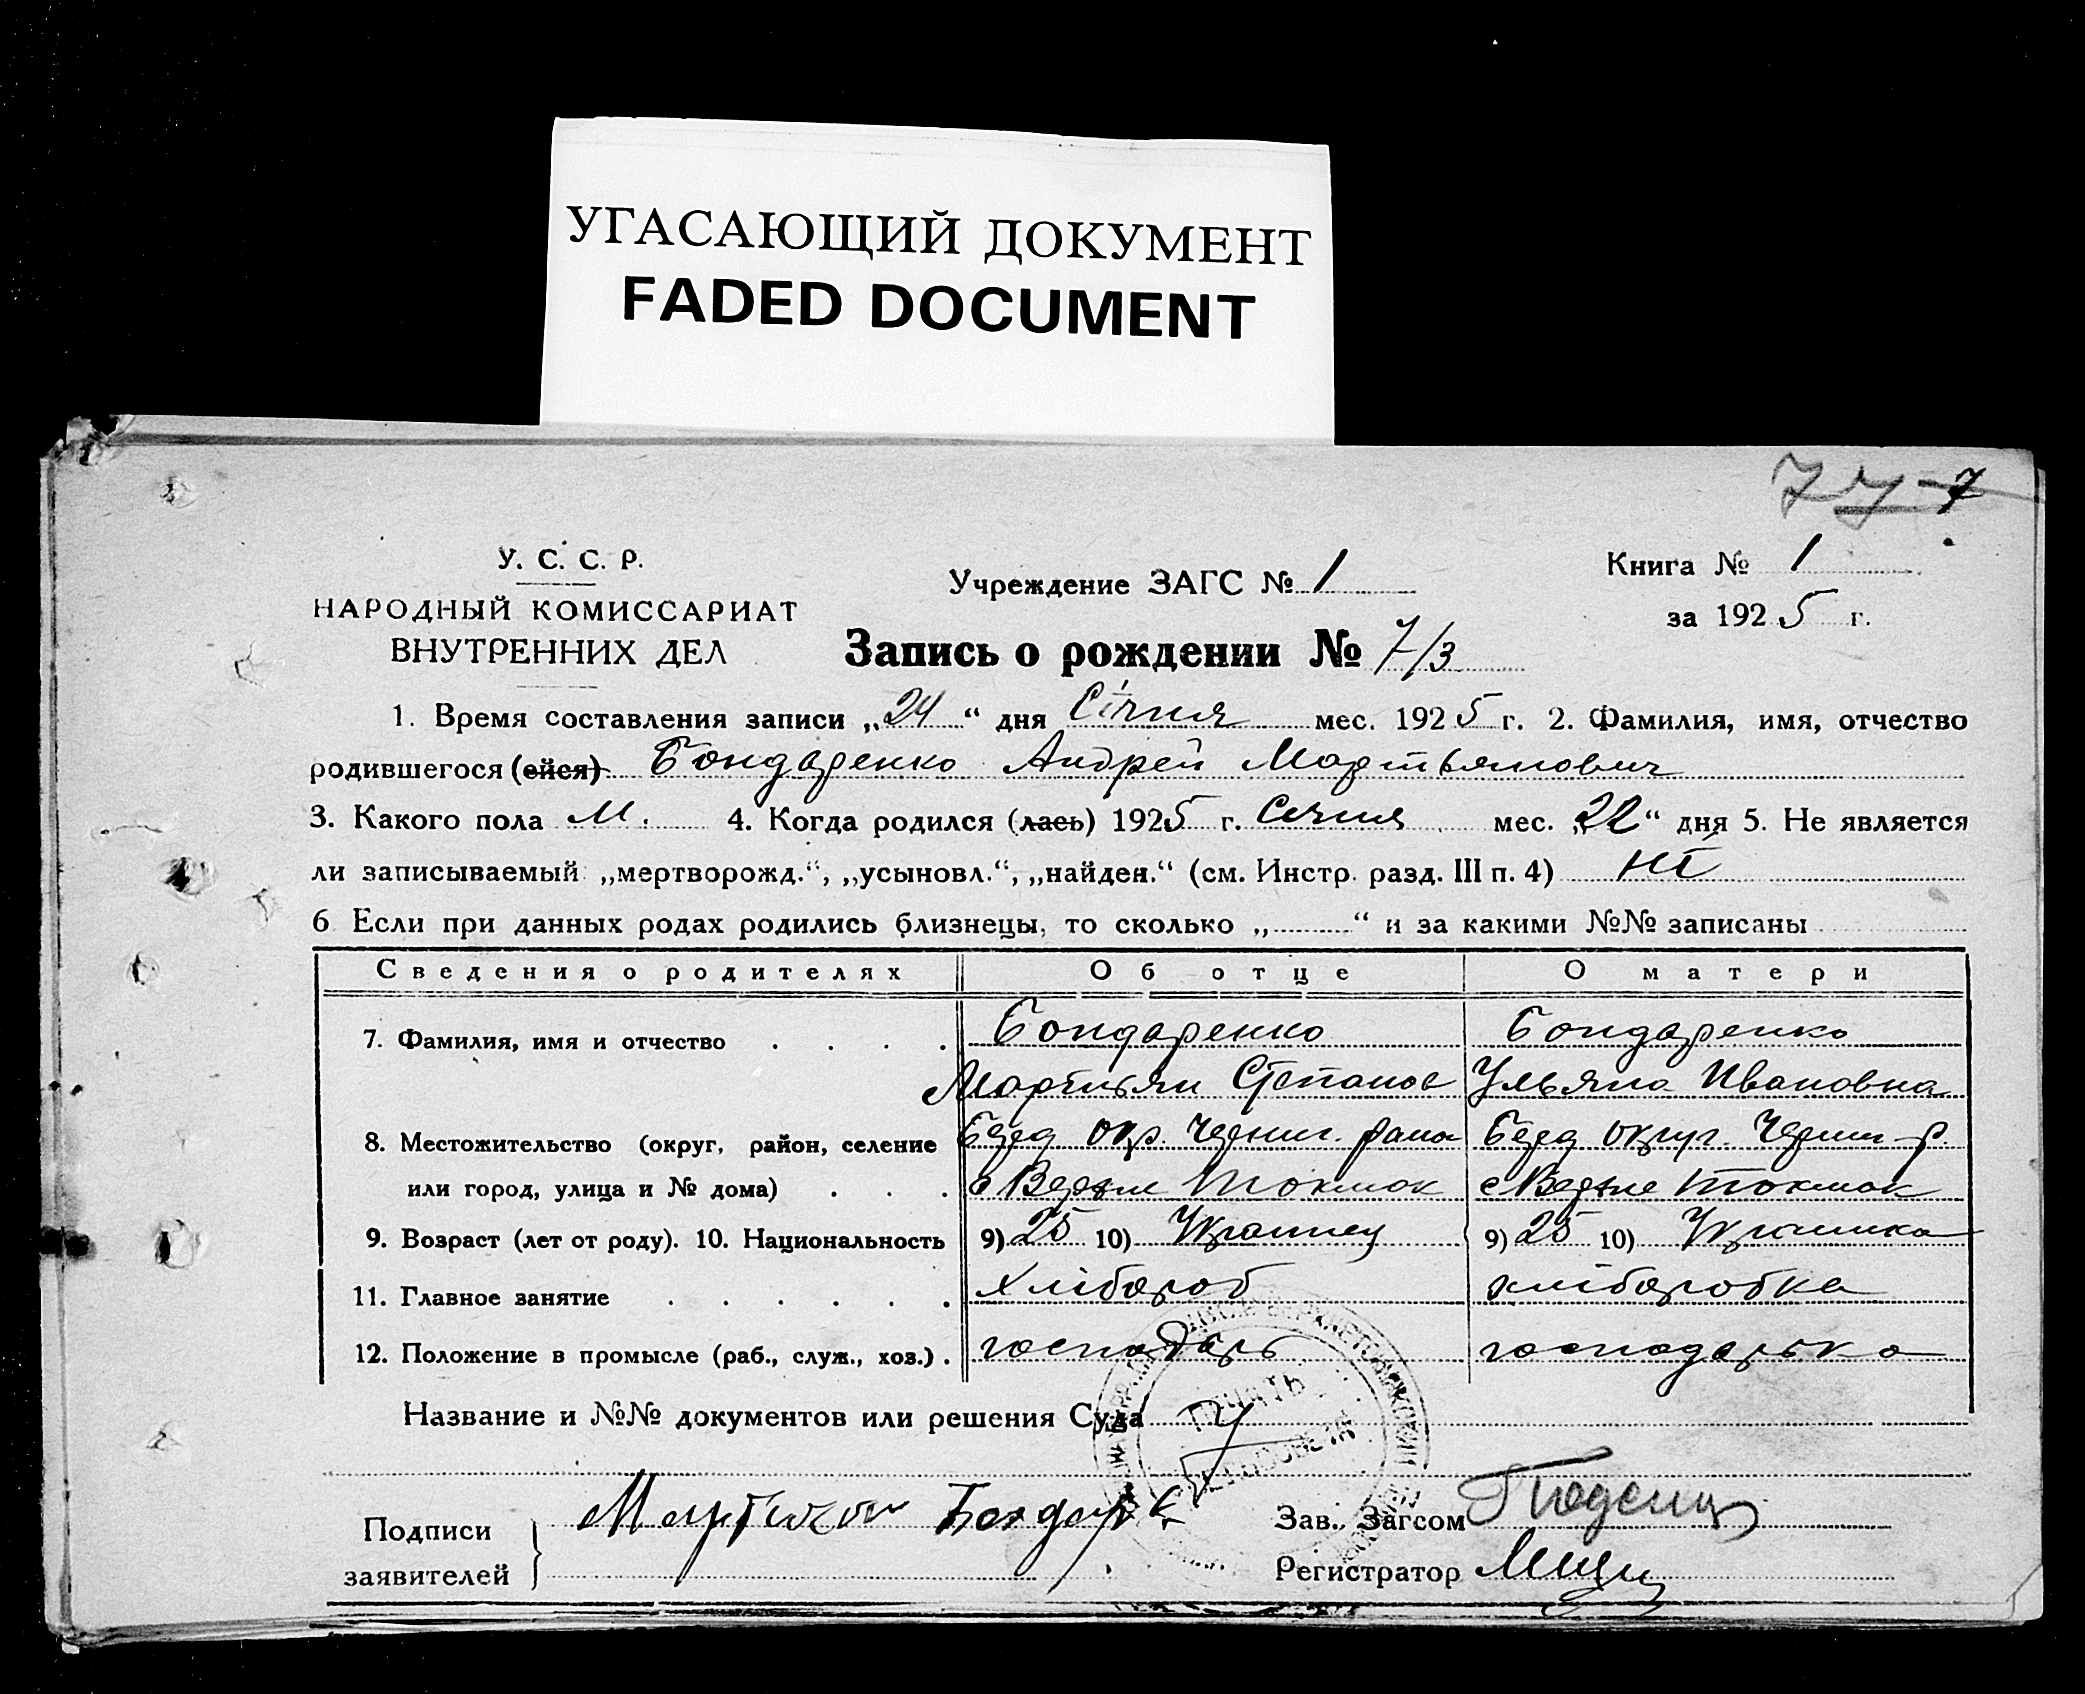 УГАСАЮЩИЙ ДОКУМЕНТ
FADED DOCUMENT
7 7 7
У. С. С. Р.
НАРОДНЫЙ КОМИССАРИАТ
ВНУТРЕННИХ ДЕЛ
Учреждение ЗАГС № 1
Книга № 1
за 1925 г.
Запись о рождении № 7/3
1. Время составления записи „24“ дня Січня мес. 1925 г. 2. Фамилия, имя, отчество
родившегося (ейся) Бондаренко Андрей Мартьянович
3. Какого пола М. 4. Когда родился (лась) 1925 г. Січня мес. „22“ дня 5. Не является
ли записываемый „мертворожд.“, „усыновл.“, „найден.“ (см. Инстр. разд. III п. 4) ні
6 Если при данных родах родились близнецы, то сколько „ “ и за какими №№ записаны
Сведения о родителях Об отце О матери
7. Фамилия, имя и отчество Бондаренко Бондаренко
Мартьян Степанов Ульяна Ивановна
8. Местожительство (округ, район, селение Берд окр. Черниг. рана Берд округ. Черниг р.
или город, улица и № дома) с Верхне Токмак с Верхне Токмак
9. Возраст (лет от роду). 10. Национальность 9) 25 10) Украинец 9) 25 10) Украинка
11. Главное занятие Хлібороб хліборобка
12. Положение в промысле (раб., служ., хоз.). господарь господарька
Название и №№ документов или решения Суда
ПЕЧАТЬ
Подписи
заявителей
Мартиян Бондар
Зав. Загсом
Регистратор